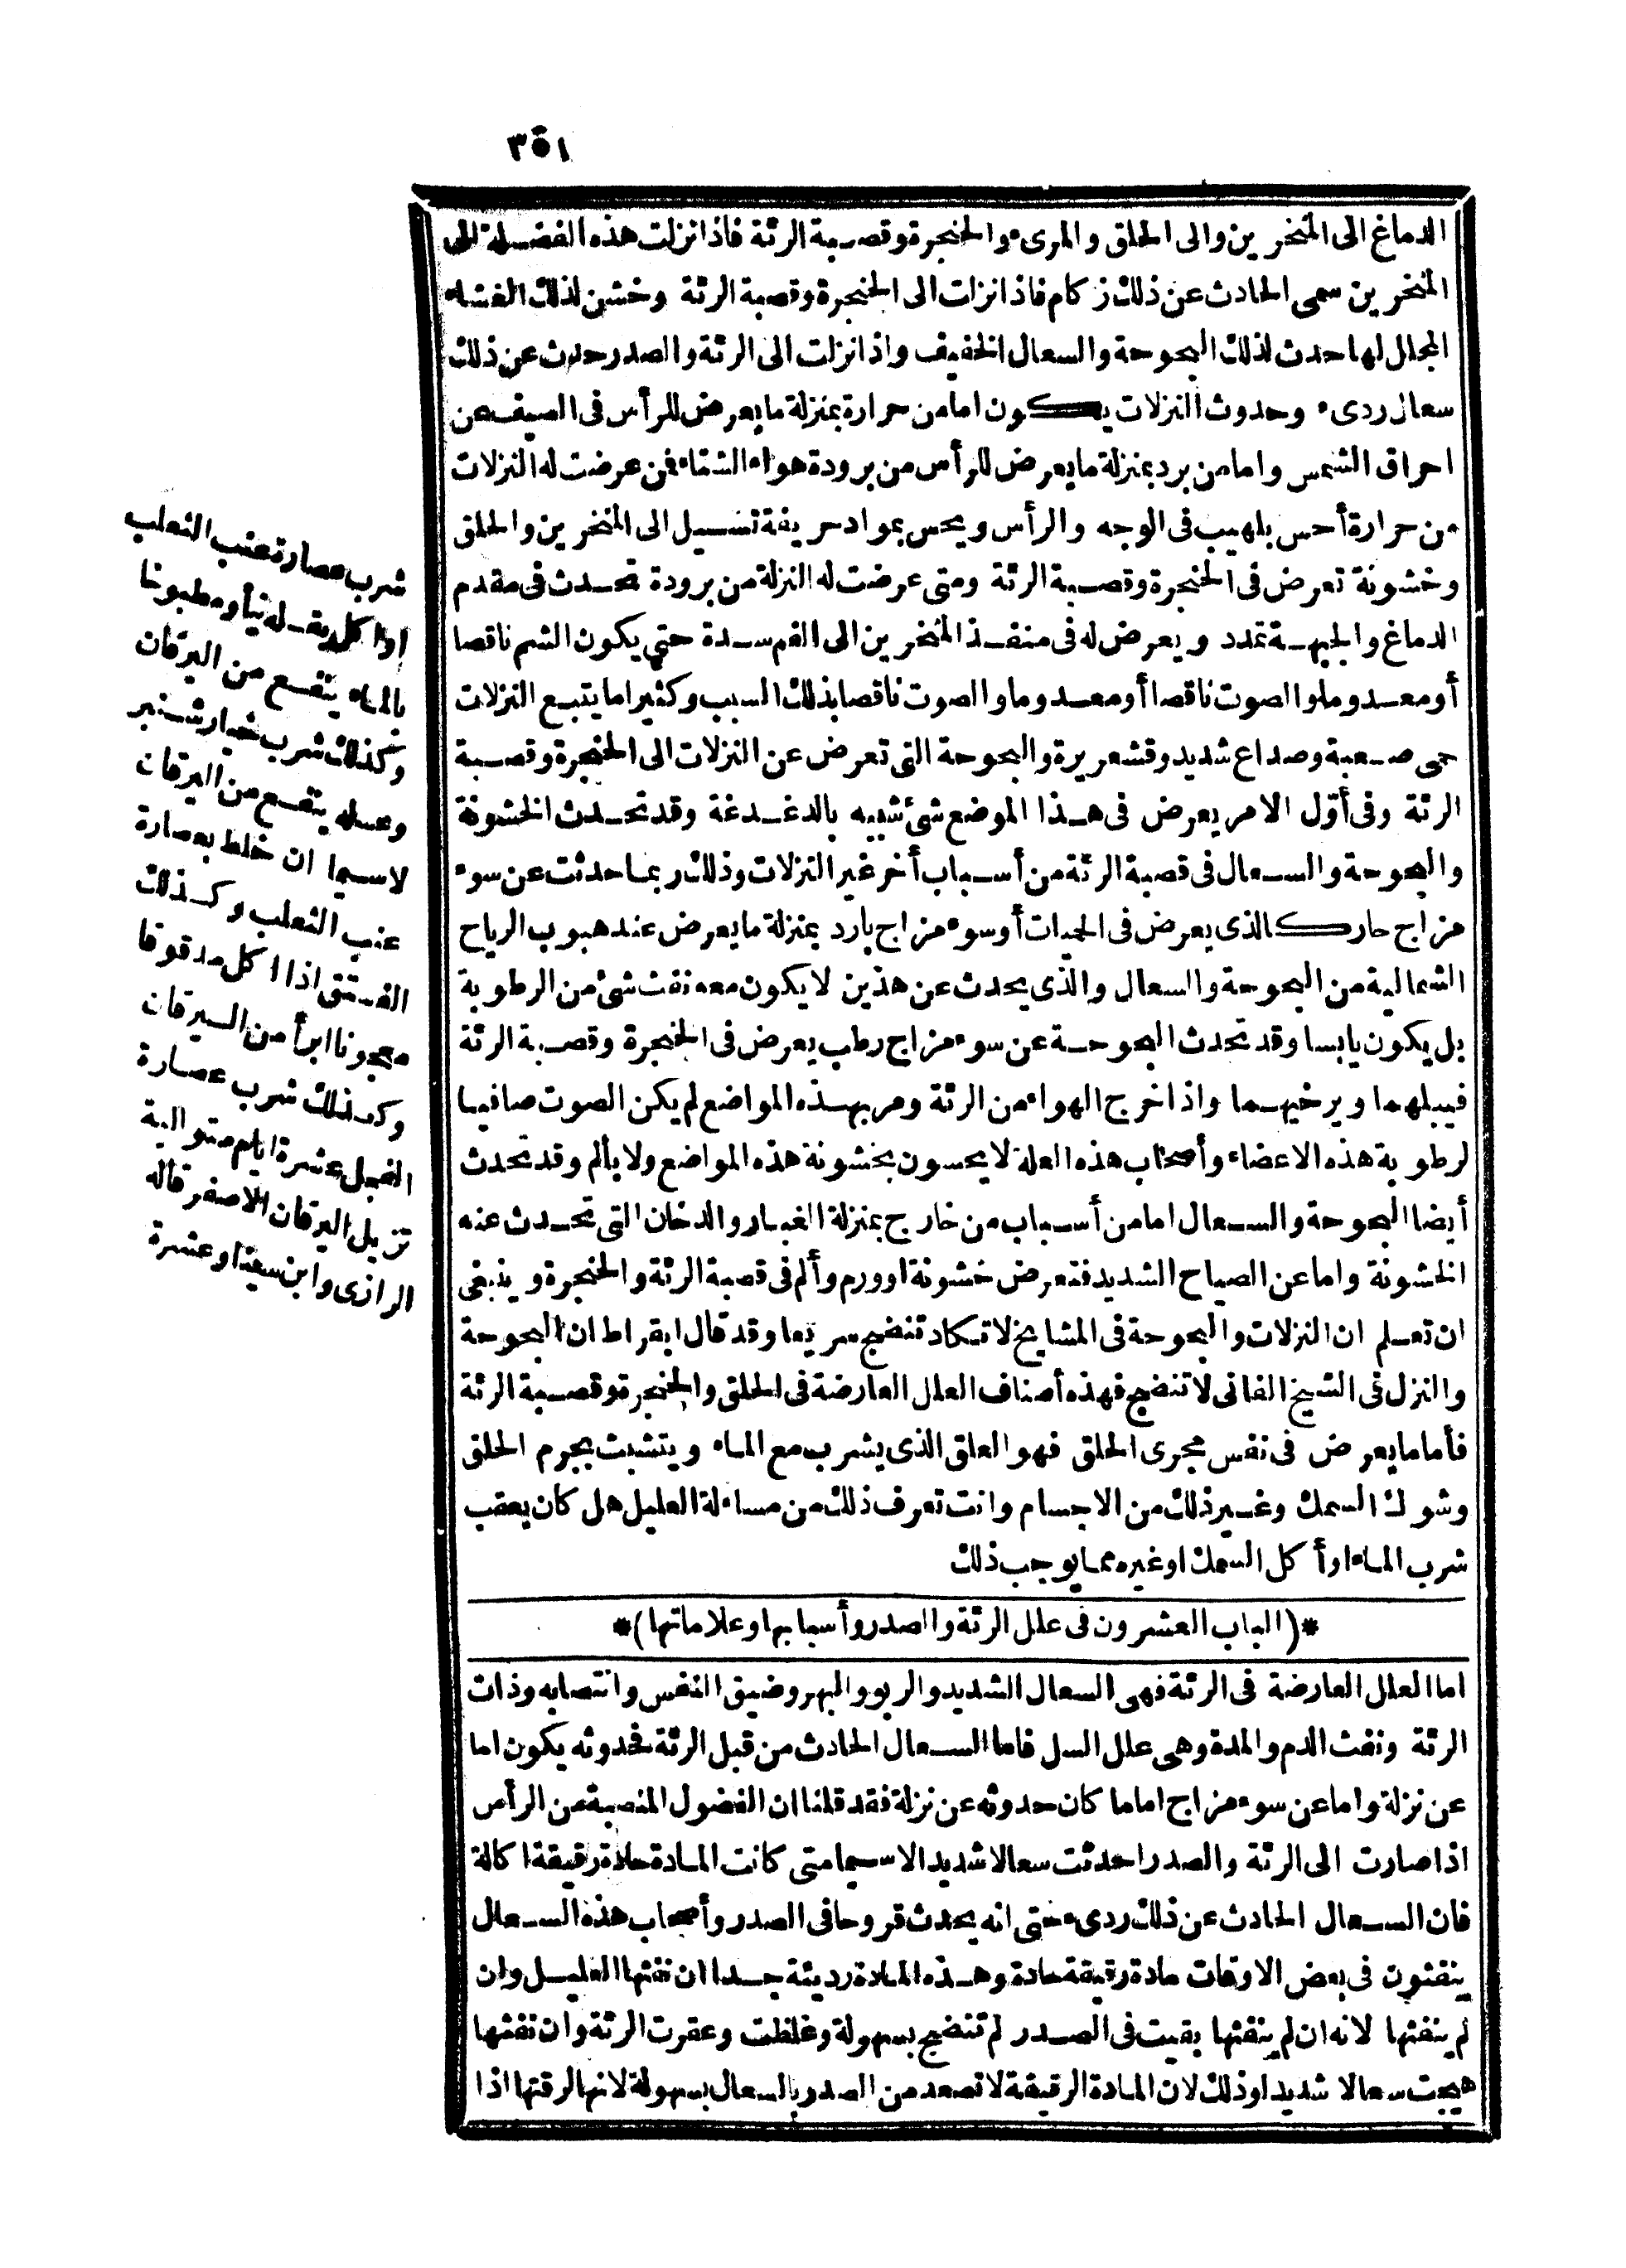 ٣٥١
الدماغ الى المنخرين والى الحلق والمرىء والحنجرة وقصبة الرئة فاذا نزلت هذه الفضلة الى
المنخرين سمى الحادث عن ذلك زكام فاذا نزلت الى الحنجرة وقصبة الرئة وخشن لذلك الغشاء
المجلل لها حدث لذلك البحوحة والسعال الخفيف واذا نزلت الى الرئة والصدر حدث عن ذلك
سعال ردىء وحدوث النزلات يكون اما من حرارة بمنزلة ما يعرض للرأس فى الصيف عن
احراق الشمس واما من برد بمنزلة ما يعرض للرأس من برودة هواء الشتاء فمن عرضت له النزلات
من حرارة أحس بلهيب فى الوجه والرأس ويحس بمواد حريفة تسيل الى المنخرين والحلق
وخشونة تعرض فى الحنجرة وقصبة الرئة ومتى عرضت له النزلة من برودة تحدث فى مقدم
الدماغ والجبهة تمدد ويعرض له فى منفذ المنخرين الى الفم سدة حتى يكون الشم ناقصا
أو معدوما والصوت ناقصا أو معدوما والصوت ناقصا بذلك السبب وكثيرا ما يتبع النزلات
حمى صعبة وصداع شديد وقشعريرة والبحوحة التى تعرض عن النزلات الى الحنجرة وقصبة
الرئة وفى أوّل الامر يعرض فى هذا الموضع شئ شبيه بالدغدغة وقد تحدث الخشونة
والبحوحة والسعال فى قصبة الرئة من أسباب أخر غير النزلات وذلك ربما حدثت عن سوء
مزاج حار كالذى يعرض فى الحميات أو سوء مزاج بارد بمنزلة ما يعرض عند هبوب الرياح
الشمالية من البحوحة والسعال والذى يحدث عن هذين لا يكون معه نفث شئ من الرطوبة
بل يكون يابسا وقد تحدث البحوحة عن سوء مزاج رطب يعرض فى الحنجرة وقصبة الرئة
فيبلهما ويرخيهما واذا خرج الهواء من الرئة ومر بهذه المواضع لم يكن الصوت صافيا
لرطوبة هذه الاعضاء وأصحاب هذه العلة لا يحسون بخشونة هذه المواضع ولا بألم وقد تحدث
أيضا البحوحة والسعال اما من أسباب من خارج بمنزلة الغبار والدخان التى تحدث عنه
الخشونة واما عن الصياح الشديد فتعرض خشونة او ورم وألم فى قصبة الرئة والحنجرة وينبغى
ان تعلم ان النزلات والبحوحة فى المشايخ لا تكاد تنضج سريعا وقد قال ابقراط ان البحوحة
والنزل فى الشيخ الفانى لا تنضج فهذه أصناف العلل العارضة فى الحلق والحنجرة وقصبة الرئة
فأما ما يعرض فى نفس مجرى الحلق فهو العلق الذى يشرب مع الماء ويتشبث بجرم الحلق
وشوك السمك وغير ذلك من الاجسام وانت تعرف ذلك من مساءلة العليل هل كان بعقب
شرب الماء او أكل السمك او غيره مما يوجب ذلك
*(الباب العشرون فى علل الرئة والصدر وأسبابها وعلاماتها)*
اما العلل العارضة فى الرئة فهى السعال الشديد والربو والبهر وضيق النفس وانتصابه وذات
الرئة ونفث الدم والمدة وهى علل السل فاما السعال الحادث من قبل الرئة فحدوثه يكون اما
عن نزلة واما عن سوء مزاج اما ما كان حدوثه عن نزلة فقد قلنا ان الفضول المنصبة من الرأس
اذا صارت الى الرئة والصدر احدثت سعالا شديدا لا سيما متى كانت المادة حادة رقيقة اكالة
فان السعال الحادث عن ذلك ردىء حتى انه يحدث قروحا فى الصدر وأصحاب هذه السعال
ينفثون فى بعض الاوقات مادة رقيقة حادة وهذه المادة رديئة جدا ان نفثها العليل وان
لم ينفثها لانه ان لم ينفثها بقيت فى الصدر لم تنضج بسهولة وغلظت وعقرت الرئة وان نفثها
هيجت سعالا شديدا وذلك لان المادة الرقيقة لا تصعد من الصدر بالسعال بسهولة لانها لرقتها اذا
شرب عصارة عنب الثعلب
او اكل بقله نيأ ومطبوخا
بالماء ينفع من اليرقان
وكذلك شرب خيار شنبر
وعسله ينفع من اليرقان
لا سيما ان خلط بعصارة
عنب الثعلب وكذلك
الفستق اذا اكل مدقوقا
معجونا ابرأ من اليرقان
وكذلك شرب عصارة
الفجل عشرة ايام متوالية
تزيل اليرقان الاصفر قاله
الرازى وابن سينا وعشرة